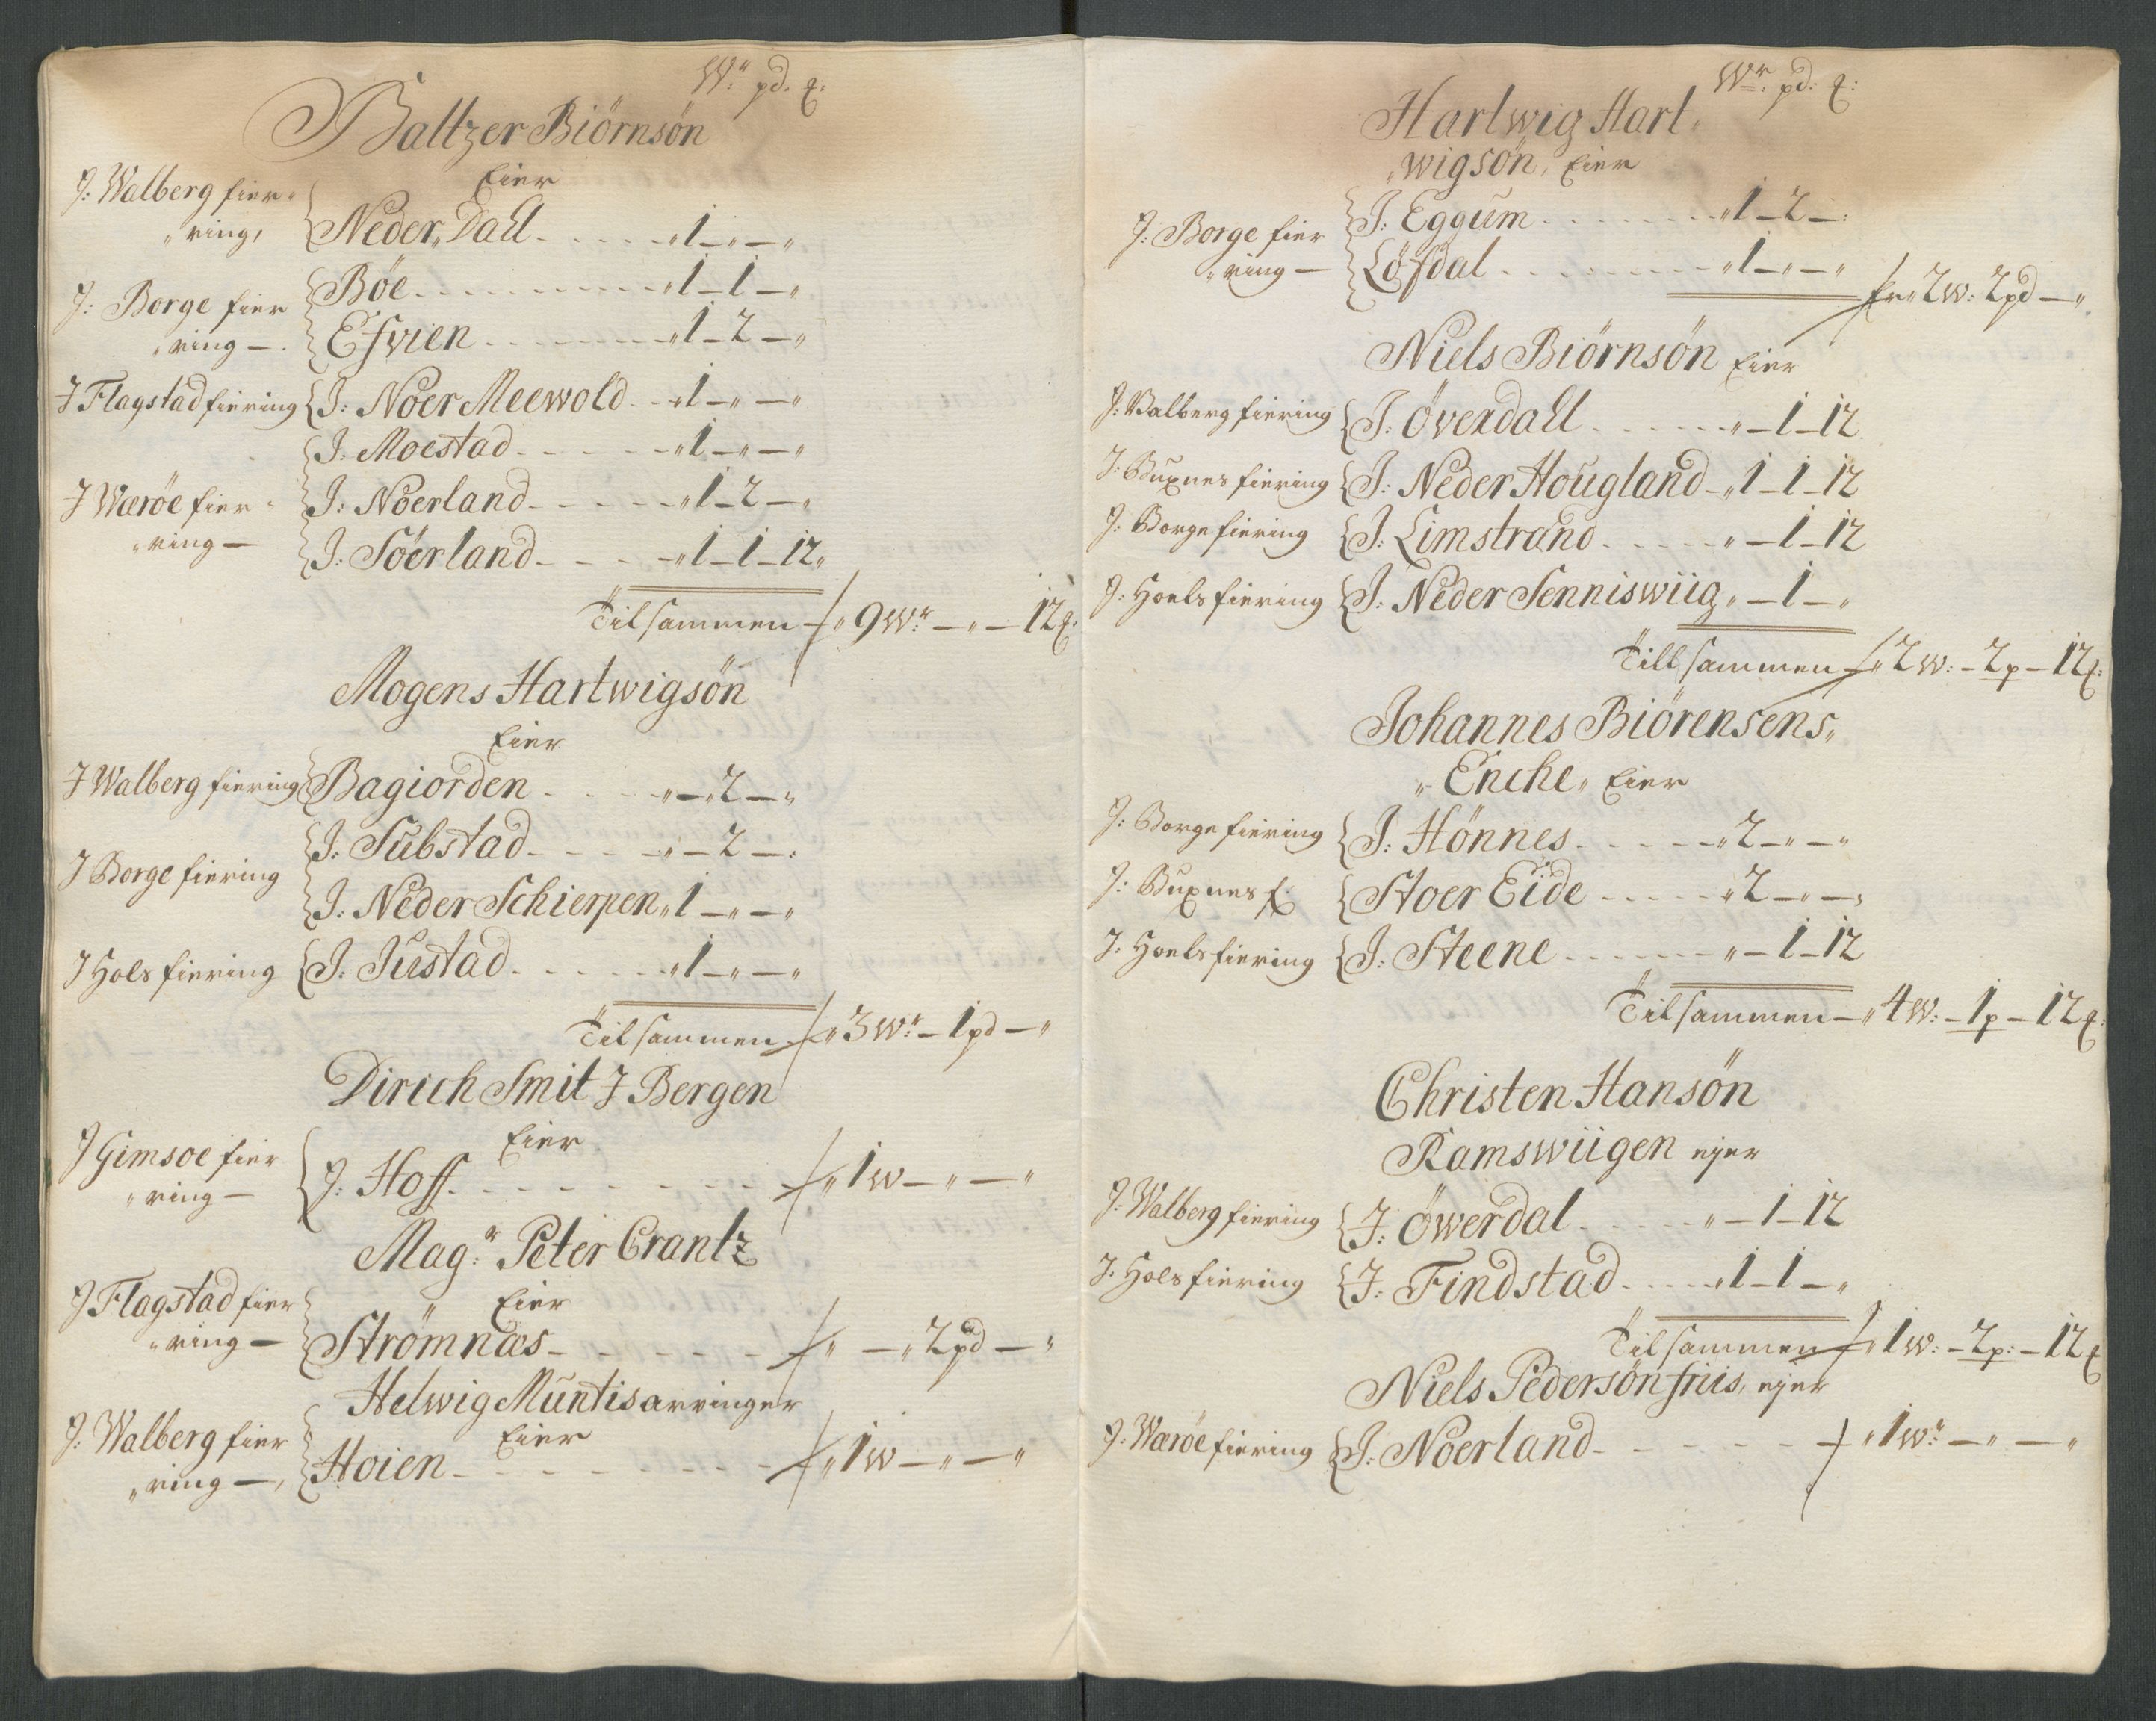 Wr: pd. ℔:
Baltzer Biörnsön
Eier
J: Walberg fier-
"ring, Neder Dall - - - - " 1 - " - "
Böe - - - - - " 1 - 1 - "
J: Borge fier
"ring - Esvien - - - - - " 1 - 2 - "
J Flagstad fiering J: Noer Meewold - - " 1 - " - "
J: Moestad - - - - " 1 - " - "
J Wæröe fier- J: Noerland - - - - " 1 - 2 - "
"ring - J: Söerland - - - " 1 - 1 - 12 "
Tilsammen - " 9 Wr: - " - 12 ℔:
Mogens Hartwigsön
Eier
J Walberg fiering Bagiorden - - - " - " 2 - "
J: Substad - - - - " - 2 - :
J Borge fiering
J: Neder Schierpen " 1 - " - "
J Hols fiering J: Justad - - - - - " 1 - " - "
Tilsammen - " 3 Wr: - 1 pd - "
Dirich Smit J Bergen
Eier
J Gimsoe fier
"ring - J: Hoff - - - - - - - " 1 w - " - "
Mag:r Peter Crantz
Eier
J Flagstad fier
"ring - Strömnæs - - - - - - " - " 2 pd - "
Helwig Müntis arvinger
Eier
J: Walberg fier
"ring -, Hoien - - - - - - - " 1 w - " - "
Wr: pd: ℔:
Hartwig Hart
"wigsön, Eier
J: Borge fier J: Eggum - - - - - " 1 - 2 - :
"ring - Löfdal - - - - - - " 1 - " - "
" 2 w: 2 pd - "
Niels Biörnsön Eier
J: Valberg fiering J: Överdall - - - - - " - 1 - 12
J: Buxnes fiering J: Neder Hougland - " 1 - 1 - 12
J: Borge fiering J: Limstrand - - - - " - 1 - 12
J: Hoels fiering J: Neder Senniswiig " - 1 - "
Tillsammen - " 2 w: - 2 p - 12 ℔:
Johannes Biörensens
" Enche " Eier
J: Borge fiering J: Hönnes - - - - - " 2 - " - "
J: Buxnes f: Stoer Eide - - - - - " 2 - " - "
J: Hoels fiering J: Steene - - - - - - " - 1 - 12
Tilsammen - " 4 w: - 1 p - 12 ℔:
Christen Hansön
Ramswiigen ejer
J: Walberg fiering J: Öwerdal - - - - - " - 1 - 12
J: Hols fiering J: Findstad - - - - " 1 - 1 - "
Tilsammen - " 1 w: - 2 p: - 12 ℔
Niels Pedersön friis, ejer
J: Wæröe fiering J: Noerland - - - - - - " 1 Wr: - " - "